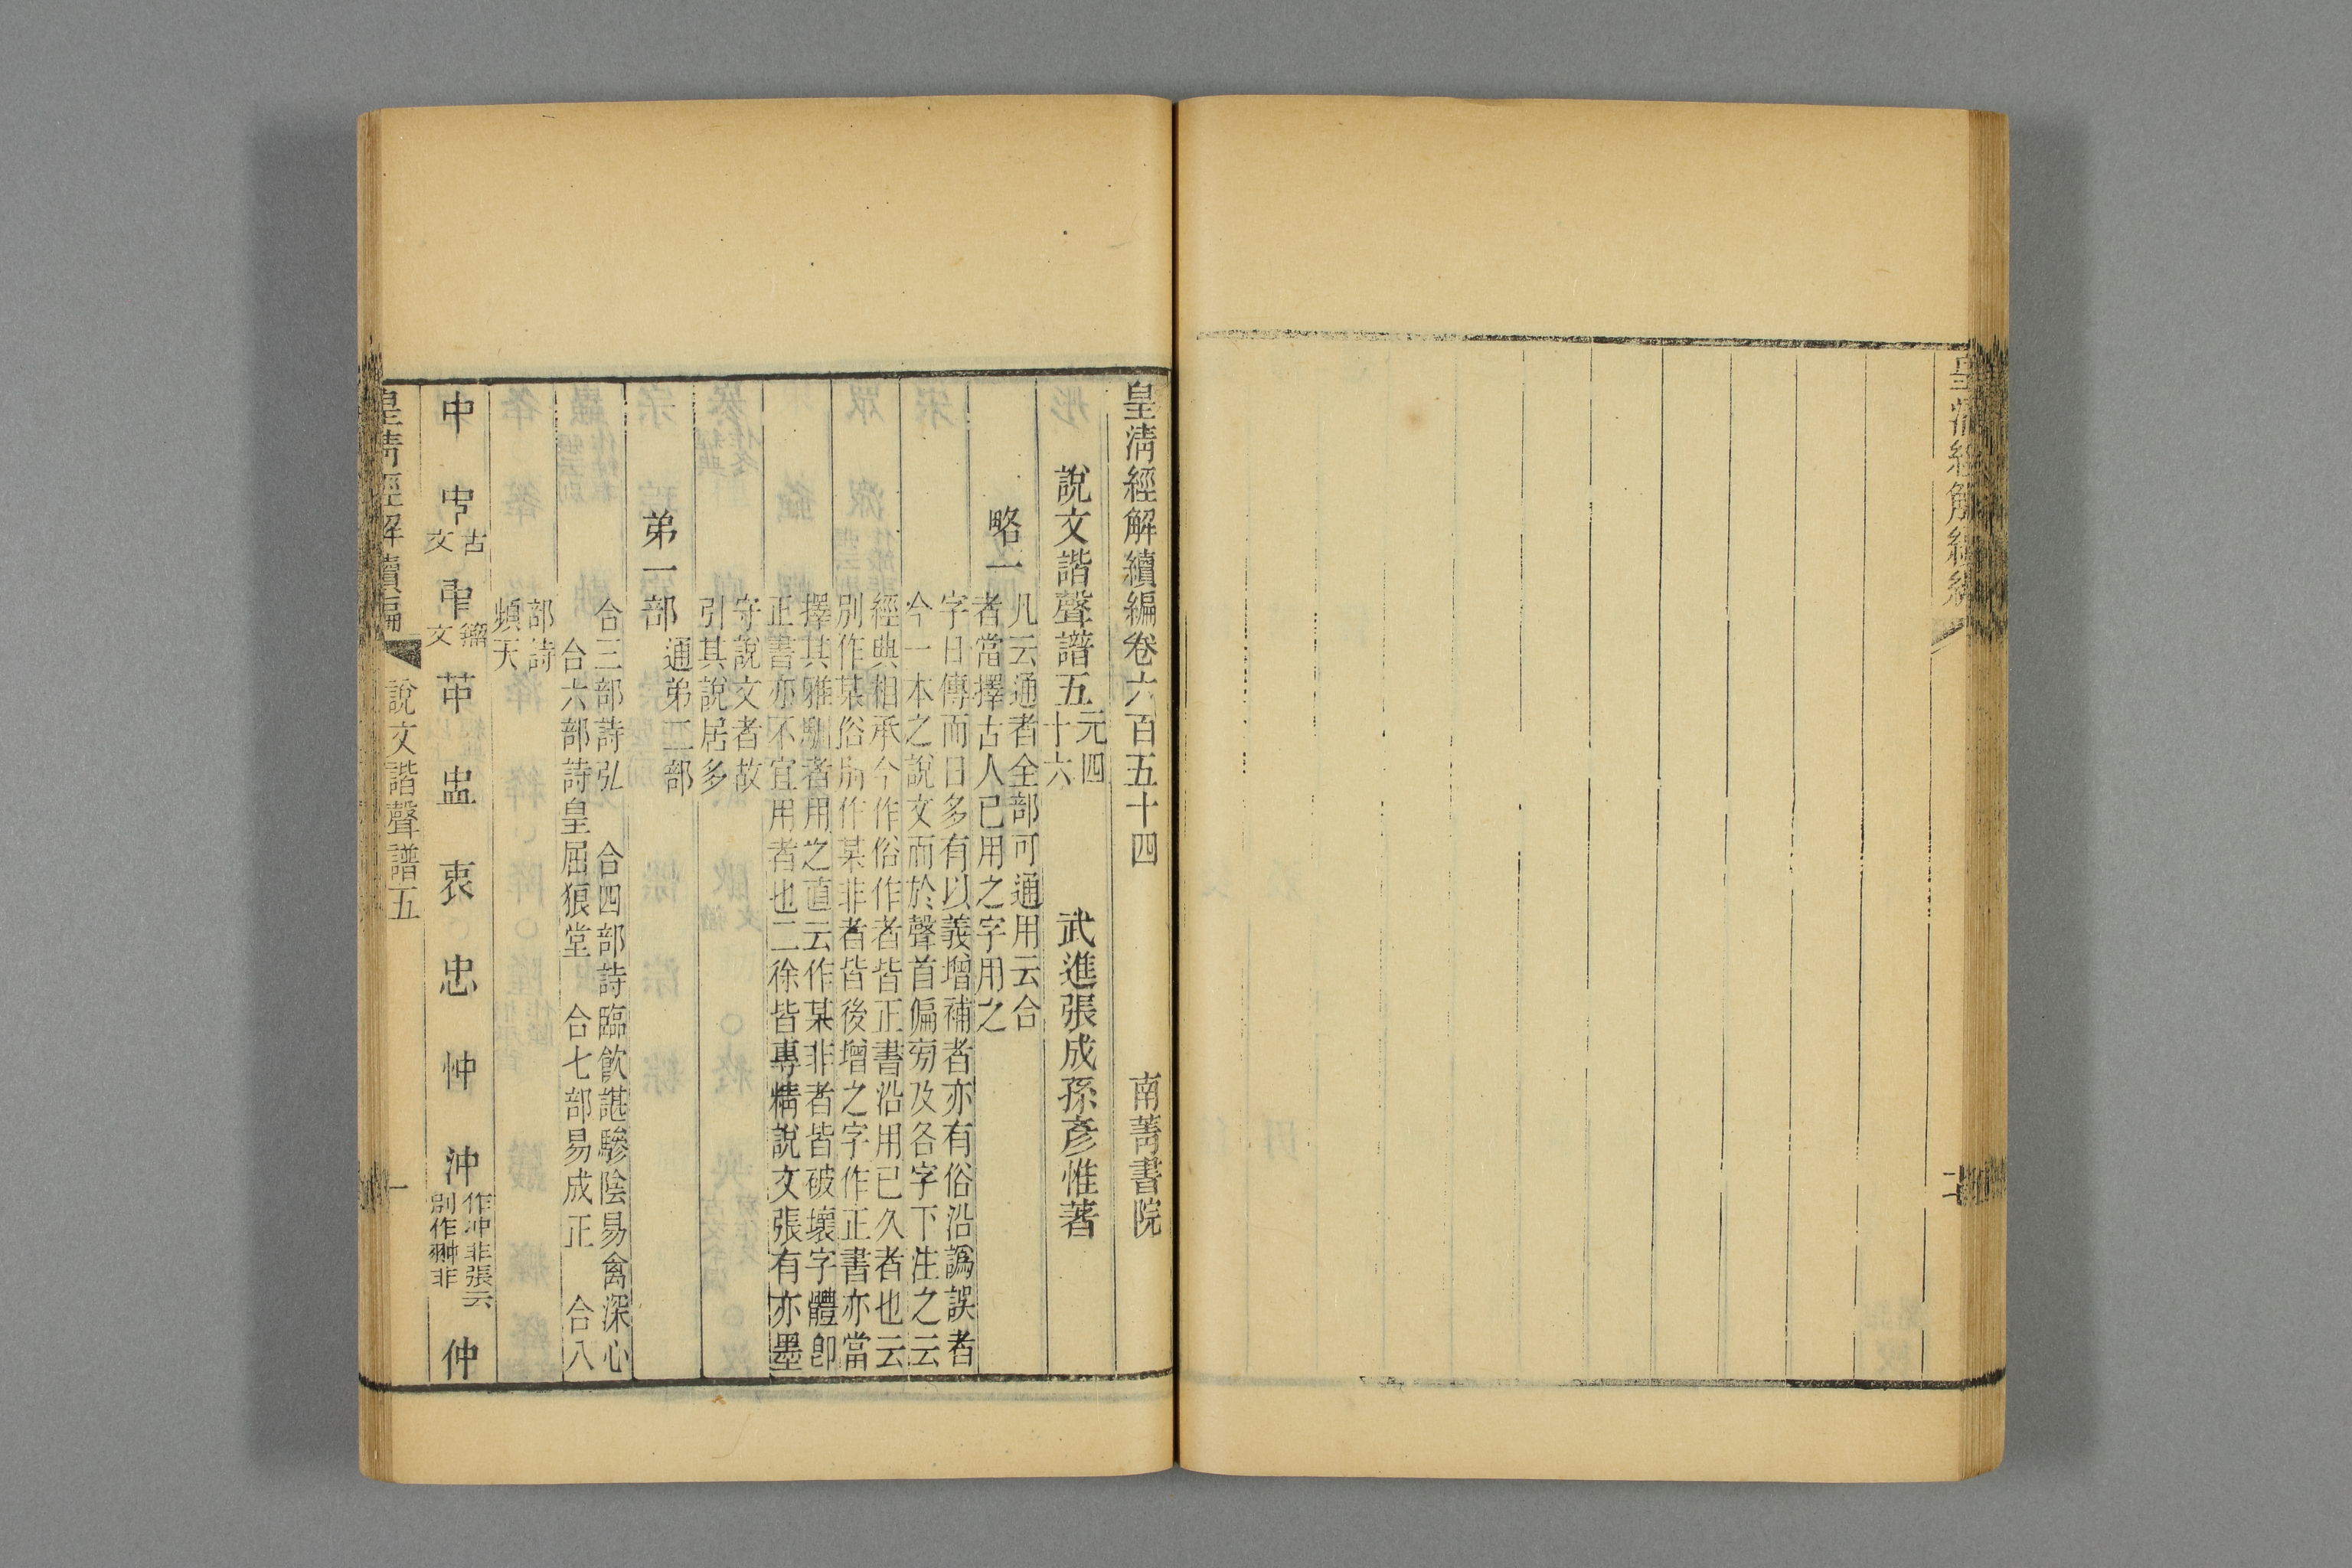 皇清經解續編
皇清經解續編卷六百五十四 南菁書院
說文諧聲譜五 元四
十六 武進張成孫彥惟著
略一
凡云通者全部可通用云合
者當擇古人已用之字用之
字日傳而日多有以義增補者亦有俗沿譌誤者
今一本之說文而於聲首偏旁及各字下注之云
經典相承今作俗作者皆正書沿用已久者也云
別作某俗別作某非者皆後增之字作正書亦當
擇其雅馴者用之直云作某非者皆破壞字體卽
正書亦不宜用者也二徐皆專精說文張有亦墨
守說文者故
引其說居多
弟一部
通弟二部
合三部詩弘 合四部詩臨飮諶驂陰易禽深心
合六部詩皇屈狼堂 合七部易成正 合八
部詩
頻天
中 𠁧 古
文 𠁩 籒
文 苹 盅 衷 忠 忡 沖 作冲非張云
別作翀非 仲
皇清經解續編 說文諧聲譜五 一